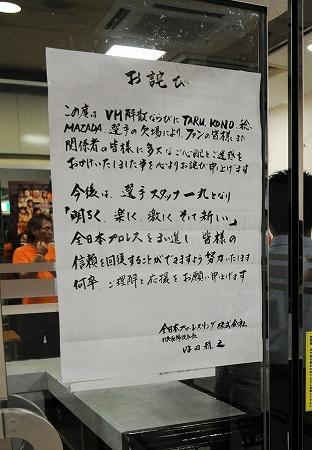 お詫び
この度は VM解散ならびに TARU、KONO、稔、
MAZADA 選手の欠場により、ファンの皆様、また
関係者の皆様に多大なご心配とご迷惑を
おかけいたしました事を心よりお詫び申し上げます
今後は、選手スタッフ一丸となり
「明るく、楽しく、激しく、そして新しい」
全日本プロレスをまい進し 皆様の
信頼を回復することができますよう努力いたします
何卒 ご理解と応援をお願い申し上げます
全日本プロレスリング株式会社
代表取締役社長
内田雅之